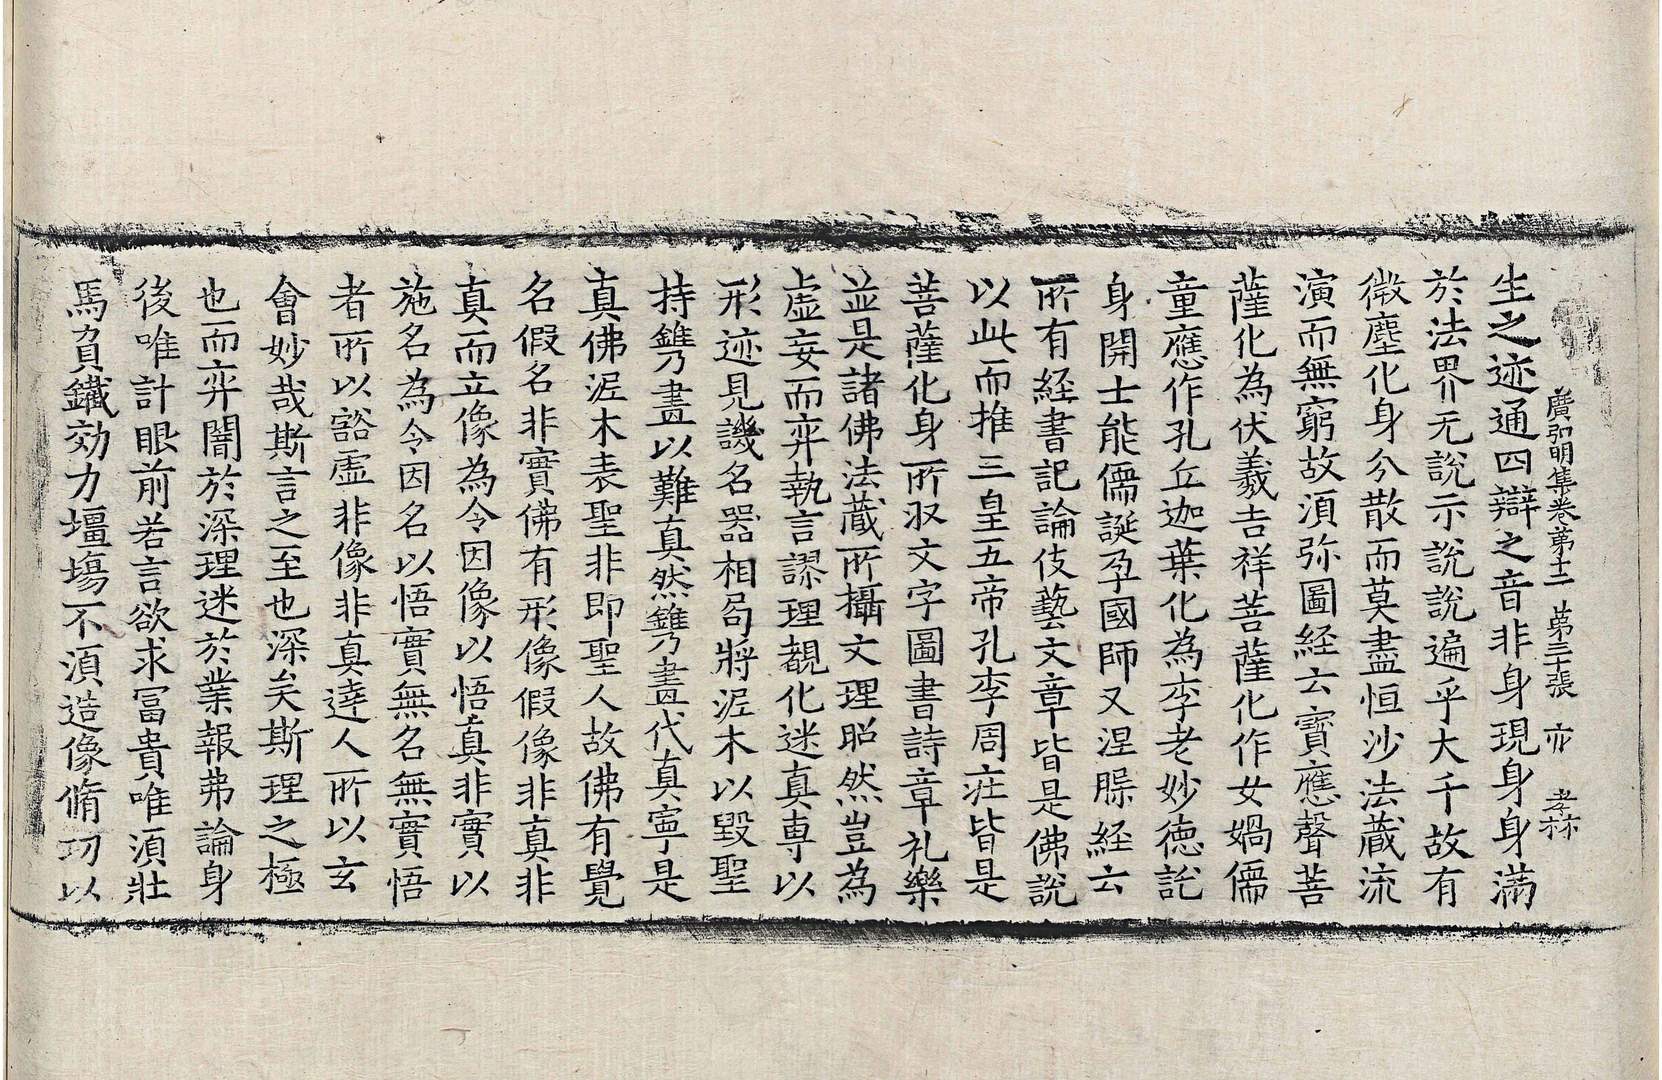 廣弘明集卷第十二　第三十張　亦　孝林
生之迹通四辯之音非身現身身滿
於法界无說示說說遍乎大千故有
微塵化身分散而莫盡恒沙法藏流
演而無窮故須弥圖経云寶應聲菩
薩化為伏羲吉祥菩薩化作女媧儒
童應作孔丘迦葉化為李老妙徳託
身開士能儒誕孕國師又涅槃経云
所有経書記論伎藝文章皆是佛說
以此而推三皇五帝孔李周庄皆是
菩薩化身所収文字圖書詩章礼樂
並是諸佛法藏所攝文理昭然豈為
虛妄而弈執言謬理覩化迷真専以
形迹見譏名器相局將泥木以毀聖
持鐫畫以難真然鐫畫代真寔是
真佛泥木表聖非即聖人故佛有覺
名假名非實佛有形像假像非真非
真而立像為令因像以悟真非實以
施名為令因名以悟實無名無實悟
者所以豁虛非像非真達人所以玄
會妙哉斯言之至也深矣斯理之極
也而弈闇於深理迷於業報弗論身
後唯計眼前若言欲求冨貴唯湏壯
馬負鐵効力壃塲不湏造像脩功以